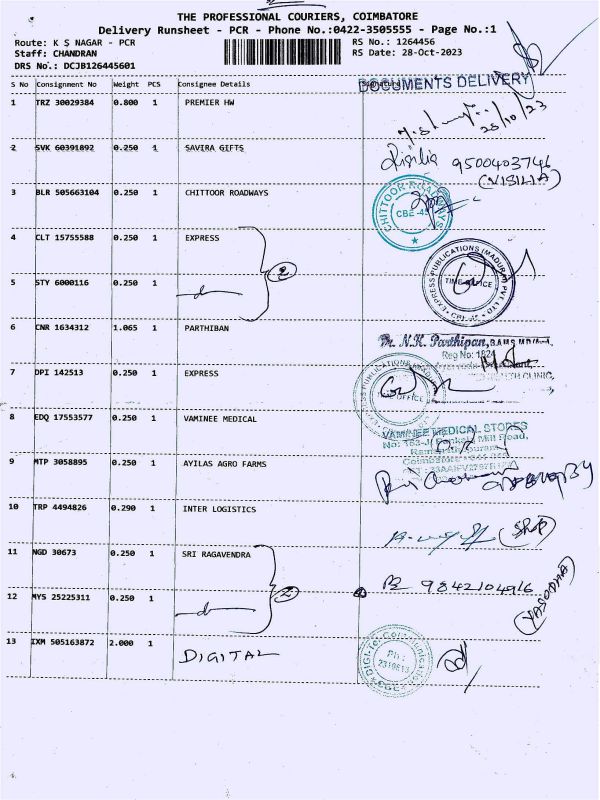 THE PROFESSIONAL COURIERS, COIMBATORE
Delivery Runsheet - PCR - Phone No.:0422-3505555 - Page No.:1
Route: K S NAGAR - PCR RS No.: 1264456
Staff: CHANDRAN RS Date: 28-Oct-2023
DRS No.: DCJB126445601
S No Consignment No Weight PCS Consignee Details DOCUMENTS DELIVERY
1 TRZ 30029384 0.800 1 PREMIER HW
28/10/23
2 SVK 60391892 0.250 1 SAVIRA GIFTS
9500403746
(VISILIA)
3 BLR 505663104 0.250 1 CHITTOOR ROADWAYS
CHITTOOR ROADWAYS
CBE-45
4 CLT 15755588 0.250 1 EXPRESS
2
EXPRESS PUBLICATIONS (MADURAI) PVT LTD
TIME OFFICE
5 STY 6000116 0.250 1
6 CNR 1634312 1.065 1 PARTHIBAN
Dr. N.K. Parthipan,
Reg No: 1824
CLINIC,
7 DPI 142513 0.250 1 EXPRESS
TIME OFFICE
8 EDQ 17553577 0.250 1 VAMINEE MEDICAL
VAMINEE MEDICAL STORES
Mill Road,
9 MTP 3058895 0.250 1 AYILAS AGRO FARMS
10 TRP 4494826 0.290 1 INTER LOGISTICS
(Shop)
11 NGD 30673 0.250 1 SRI RAGAVENDRA
2
9842104916
(YASODHA)
12 MYS 25225311 0.250 1
13 IXM 505163872 2.000 1 DIGITAL
Ph:
2319613
CBE